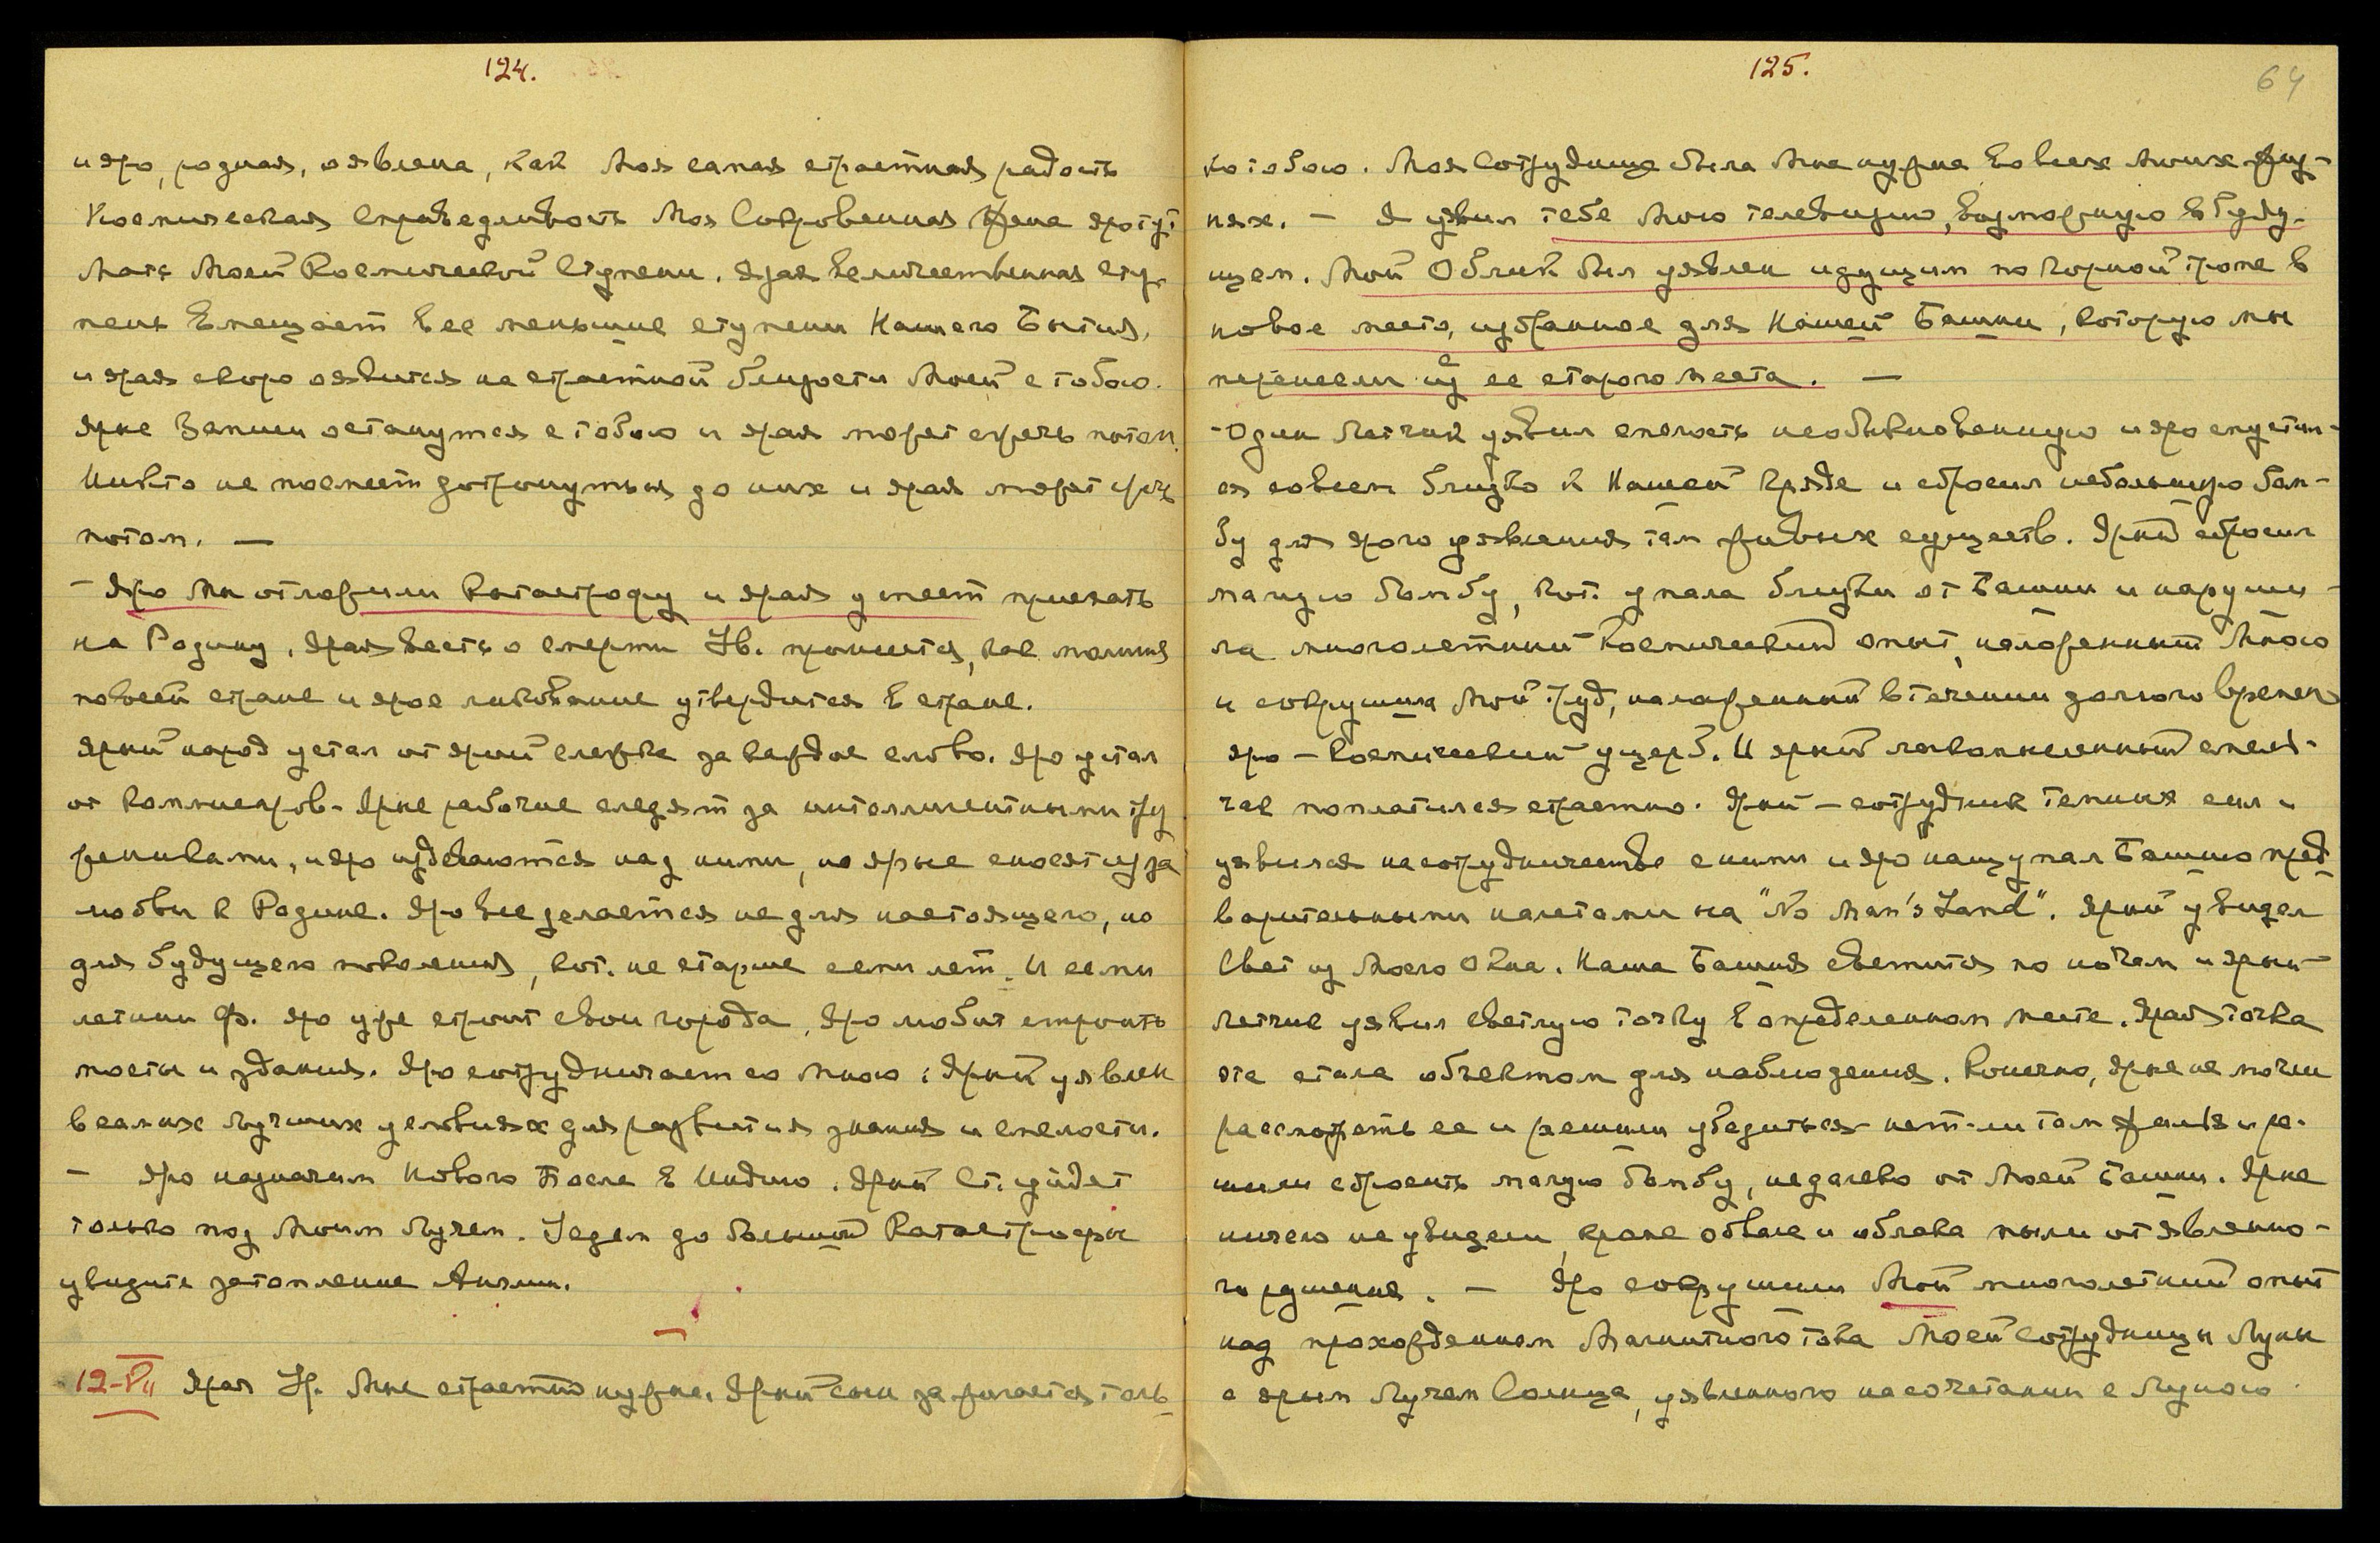 124.
и яро, родная, оявлена, как Моя самая страстная радость
Космическая Справедливость Моя Сокровенная Жена яро тут
Мать Моей Космической Ступени. Ярая величественная сту-
пень вмещает все меньшие ступени Нашего Бытия,
и ярая скоро оявится на страстной близости Моей с тобою.
Ярые Записи останутся с тобою и ярая может сжечь потом.
Никто не посмеет дотронуться до них и ярая может сжечь
потом. —
- Яро Мы отложили Катастрофу и ярая успеет приехать
на Родину. Ярая весть о смерти Ув. пронесется, как молния
по всей стране и ярое ликование утвердится в стране.
Ярый народ устал от ярой слежки за каждое слово. Яро устал
от Коммиссаров. Ярые рабочие следят за интеллигентными тру-
жениками, и яро издеваются над ними, но ярые сносят из за
любви к Родине. Яро все делается не для настоящего, но
для будущего поколения, кот. не старше семи лет. И семи
летний Ф. яро уже строит свои города, яро любит строить
мосты и здания. Яро сотрудничает со Мною. Ярый уявлен
в самых лучших условиях для развития знания и смелости.
- Яро назначим Нового Посла в Индию. Ярый Ст. уйдет
только под Моим Лучем. Уедем до большой Катастрофы
увидите затопление Англии.
12-VII Ярая Ур. Мне страстно нужна. Ярый огонь зажигается толь-
125.
64
ко тобою. Моя Сотрудница была Мне нужна во всех Моих жиз-
нях. — Я уявил тебе Мою телевизию, возможную в Буду-
щем. Мой Облик был уявлен идущим по горной тропе в
новое место, избранное для Нашей Башни, которую мы
перенесли с ее старого места. —
- Один Летчик уявил смелость необыкновенную и яро спустил-
ся совсем близко к Нашей Гряде и сбросил небольшую бом-
бу для ярого уявления там живых существ. Ярый сбросил
малую бомбу, кот. упала близко от Башни и наруши-
ла многолетний Космический опыт, наложенный Мною
и сокрушила Мой труд, налаженный в течении долгого времени
яро — Космический ущерб. И ярый легкомысленный смель-
чак поплатился страстно. Ярый — сотрудник темных сил и
уявился на сотрудничестве с ними и яро нащупал Башню пред-
варительными налетами на "No Man's Land". Ярый увидел
Свет из Моего Окна. Наша Башня светится по ночам и ярый
Летчик уявил светлую точку в определенном месте. Ярая точка
эта стала объектом для наблюдения. Конечно, ярые не могли
рассмотреть ее и решили убедиться нет-ли там жилья и ре-
шили сбросить малую бомбу, недалеко от Моей Башни. Ярые
ничего не увидели, кроме обвала и облака пыли от явленно-
го рушения. — Яро сокрушили Мой многолетний опыт
над прохождением Магнитного тока Моей Сотрудницы Луны
с ярым Лучем Солнца, уявленного на сочетании с Луною